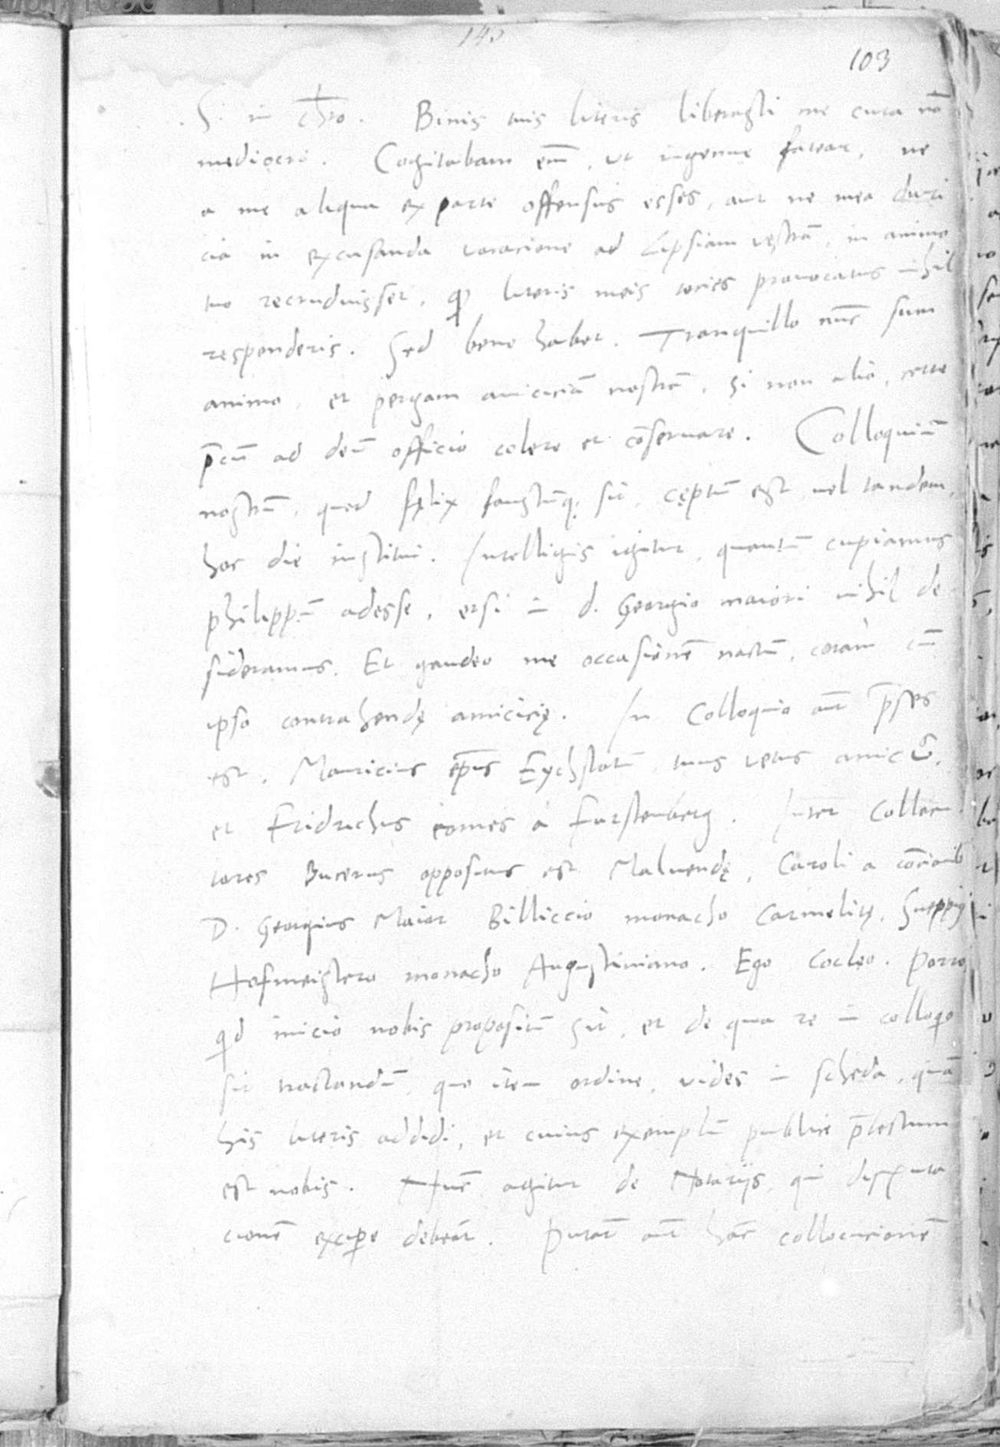 103
S. in Chro. Binis tuis literis liberasti me cura nō
mediocri. Cogitabam em̄, ut ingenue fatear, ne
a me aliqua ex parte offensus esses, aut ne mea duri
cia in excusanda vocacione ad Lipsiam vestrā, in animo
tuo recruduisset, qp literis meis tocies provocatus nihil
responderis. Sed bene habet. Tranquillo nūc sum
animo, et pergam amiciciā nostrā, si non alio, certe
p̄cū ad deū officio colere et cōseruare. Colloquiū
nostrū, quod fęlix faustūq; sit, cęptū est uel tandem,
hoc die institui. Intelligis igitur, quantū cupiamus
philippū adesse, etsi in d. Georgio maiori nihil de
sideramus. Et gaudeo me occasionē nactū, coram cū
ipso contrahendę amicicię. In Colloquio aūt p̄ses
est, Mauricius ep̄us Eychstatū, tuus vetus amicus,
et Fridrichus comes à Furstenberg. Inter collocu
tores Bucerus oppositus est Maluendę, Caroli a concionib
D. Georgius Maior Billiccio monacho Carmelitę, Sneppius
Hofmeistero monacho Augustiniano. Ego Cocleo. Porro
qid inicio nobis propositū sit, et de qua re in colloqio
sit tractandū, quo item ordine, vides in scheda, quā
his literis addidi, et cuius exemplū publice p̄lectum
est nobis. Nunc agitur de Notarijs, qui disputa
cionē excipe debeāt. Putāt aūt hāc collocucionē